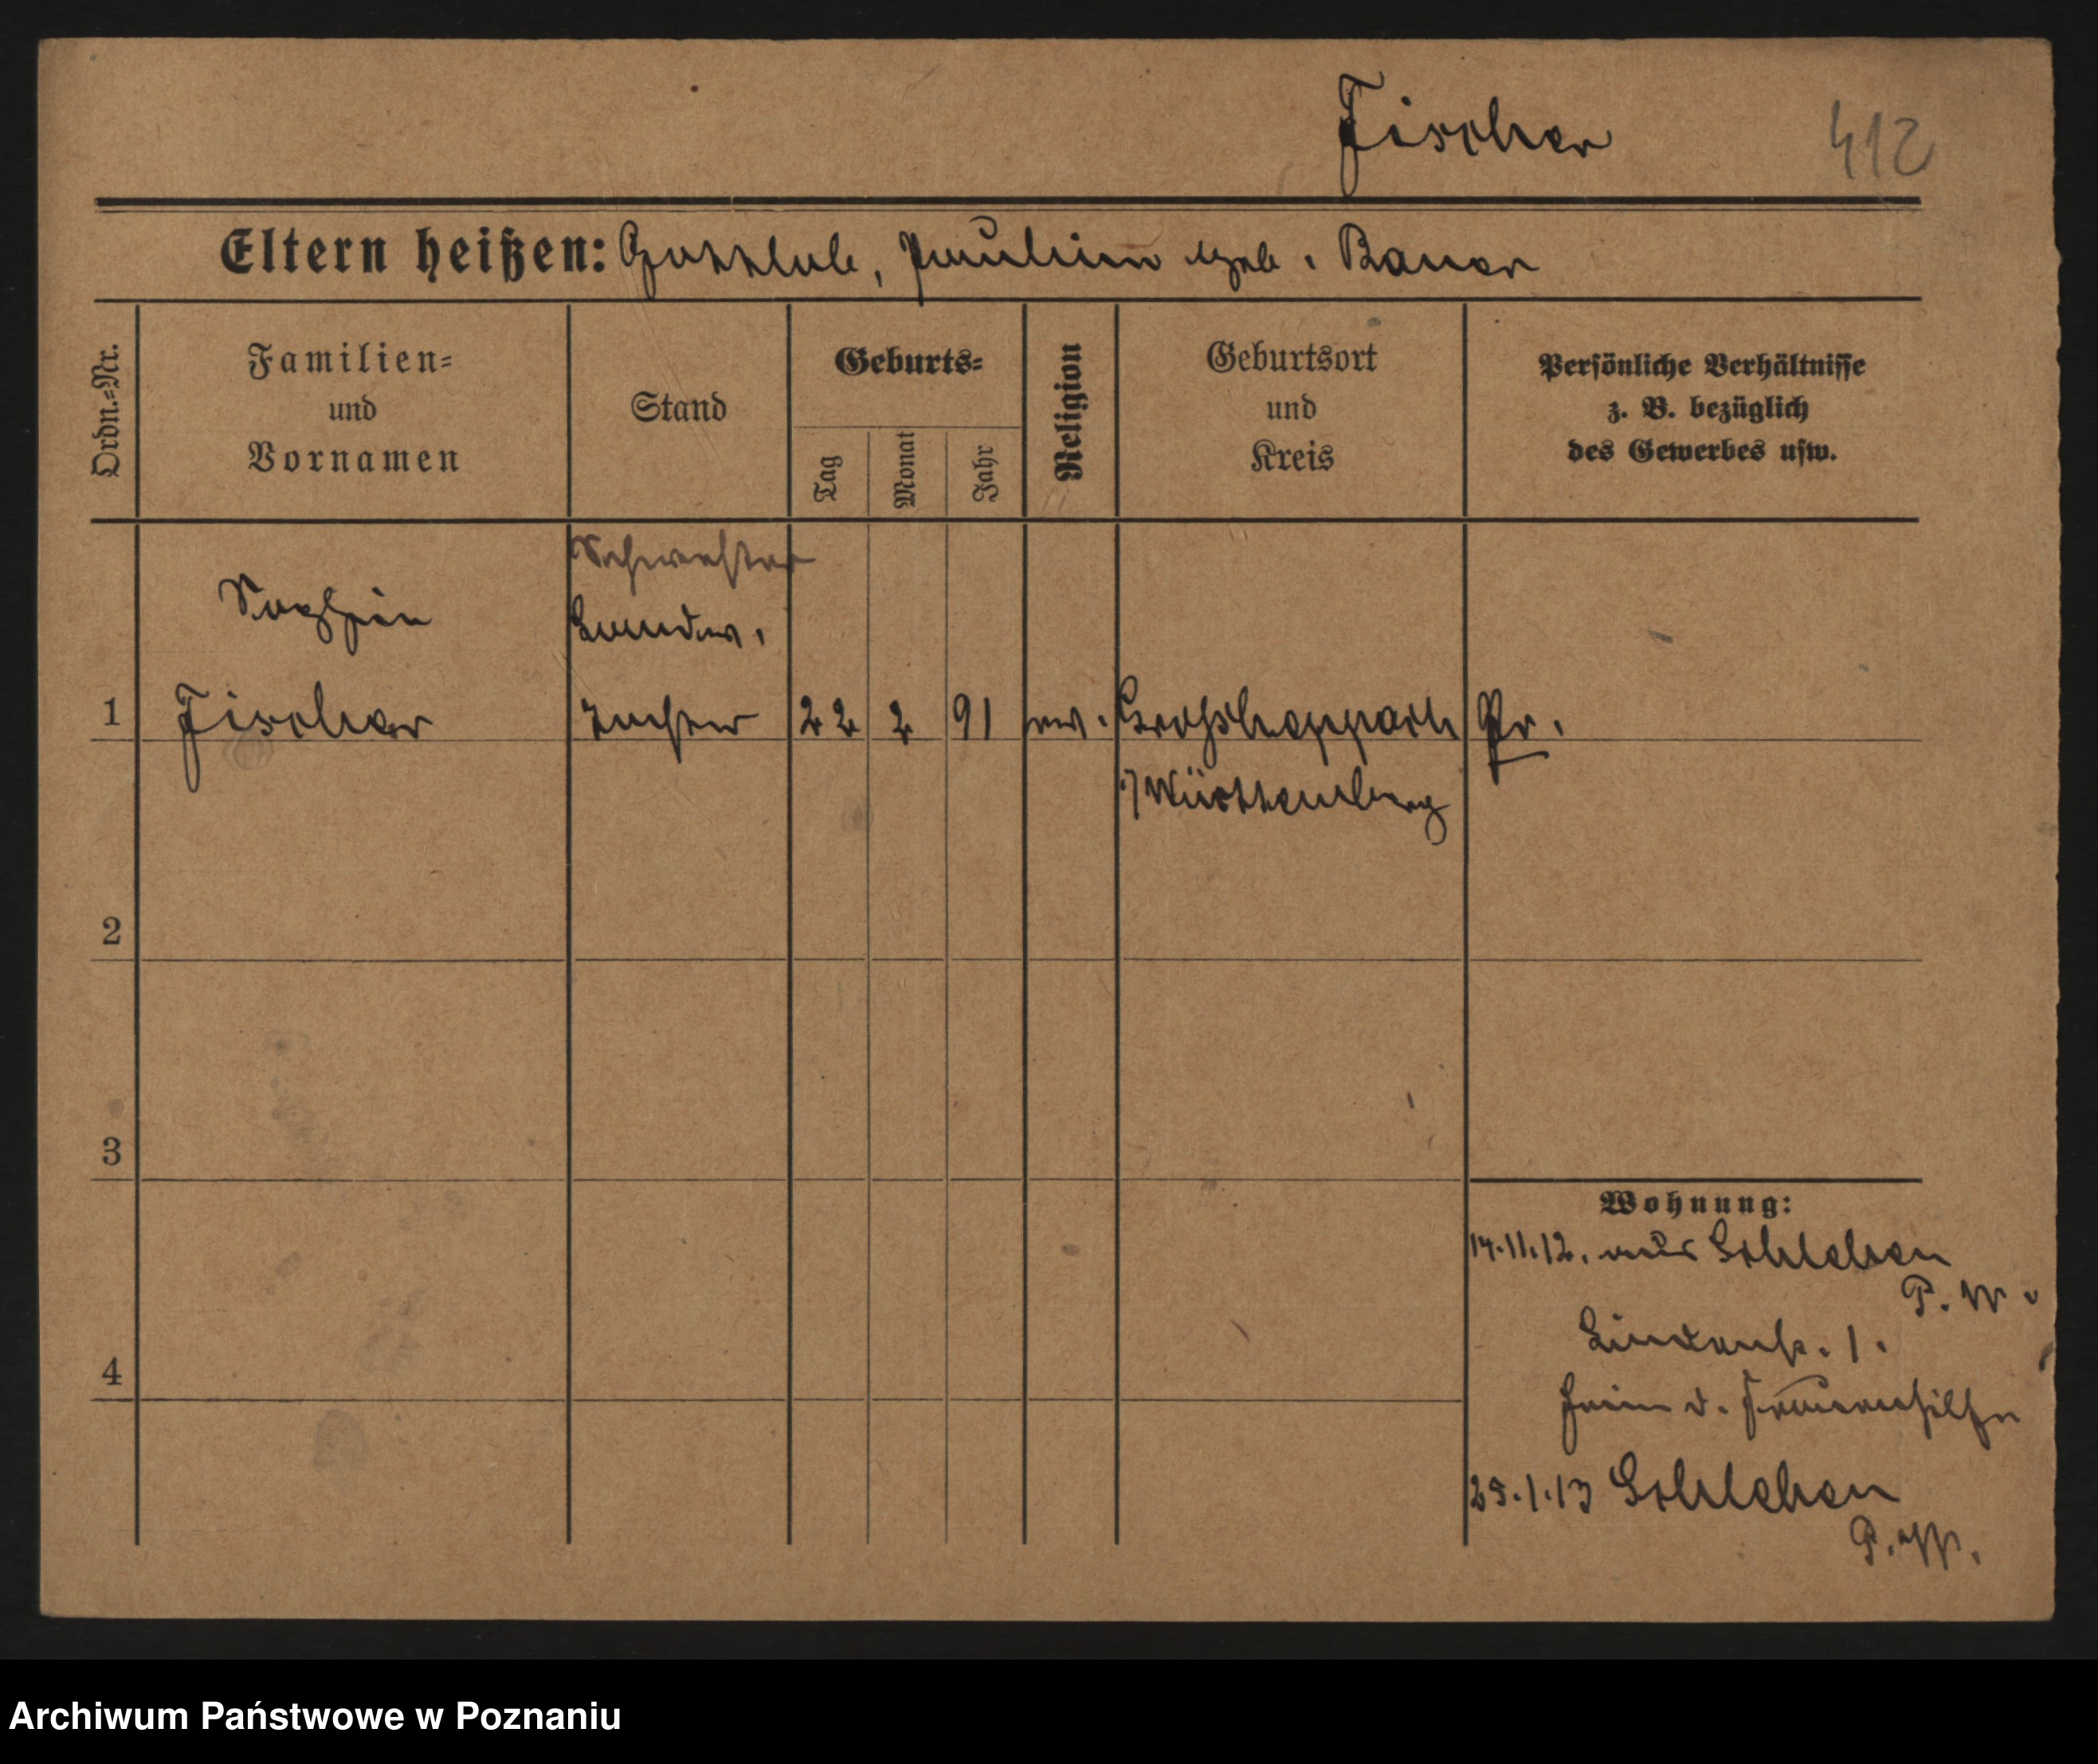 Fischer 412
Eltern heißen: Gottlob, Pauline geb. Bauer
Ordn.-Nr.
Familien-
und
Vornamen
Stand
Geburts-
Tag
Monat
Jahr
Religion
Geburtsort
und
Kreis
Persönliche Verhältnisse
z. B. bezüglich
des Gewerbes usw.
Schwester
Sophie
Landw.
1 Fischer 22 2 91 ev. Grosheppach Pr.
Württemberg
2
3
Wohnung:
14.11.12. aus
P. W.
Lindenstr. 1.
4
Heim d. Frauenhilfe
25.1.13
P. W.
Archiwum Państwowe w Poznaniu